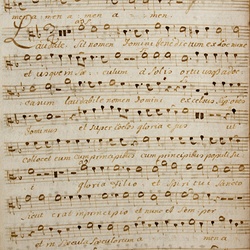 men a men a men
Laudate sit nomen Domini benedictum ex hoc nunc
et usque in sæ culum et Solis ortu usq ad oc
casum laudabile nomen Domini excelsus
Dominus et super cœlos gloria e jus
collocet eum cum principibus cum principibus populi su
i gloria Filio et Spiritui Sancto
sicut erat in principio et nunc et sem per
et in sæcula sæculorum a men a